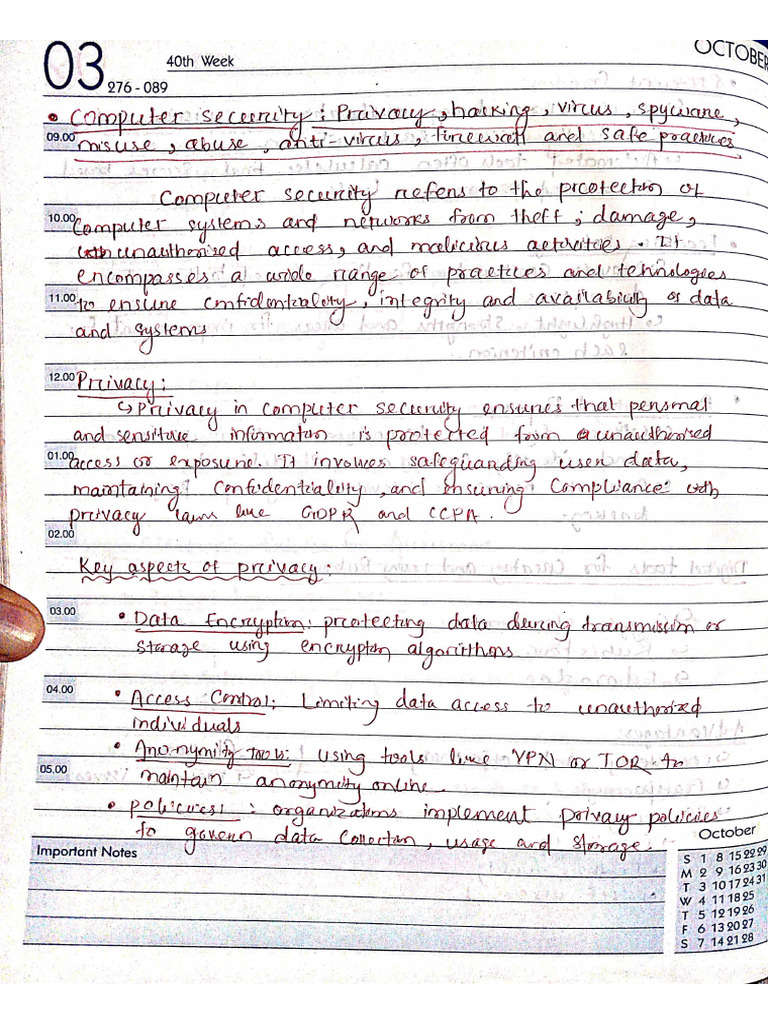 03
276 - 089
40th Week
OCTOBER
• Computer security : Privacy, hacking, virus, spyware,
09.00 misuse, abuse, anti-virus, firewall and safe practices
Computer security refers to the protection of
10.00 computer systems and networks from theft, damage,
unauthorised access, and malicious activities. It
encompasses a wide range of practices and technologies
11.00 to ensure confidentiality, integrity and availability of data
and systems
12.00 Privacy:
↳ Privacy in computer security ensures that personal
and sensitive information is protected from unauthorised
01.00 access or exposure. It involves safeguarding user data,
maintaining confidentiality, and ensuring compliance with
privacy laws like GDPR and CCPA.
02.00
Key aspects of privacy:
03.00 • Data Encryption: protecting data during transmission or
storage using encryption algorithms
04.00 • Access Control: Limiting data access to unauthorized
individuals
• Anonymity tools: using tools like VPN or TOR to
05.00 maintain anonymity online.
• policies : organizations implement privacy policies
to govern data collection, usage and storage.
Important Notes
October
S 1 8 15 22 29
M 2 9 16 23 30
T 3 10 17 24 31
W 4 11 18 25
T 5 12 19 26
F 6 13 20 27
S 7 14 21 28